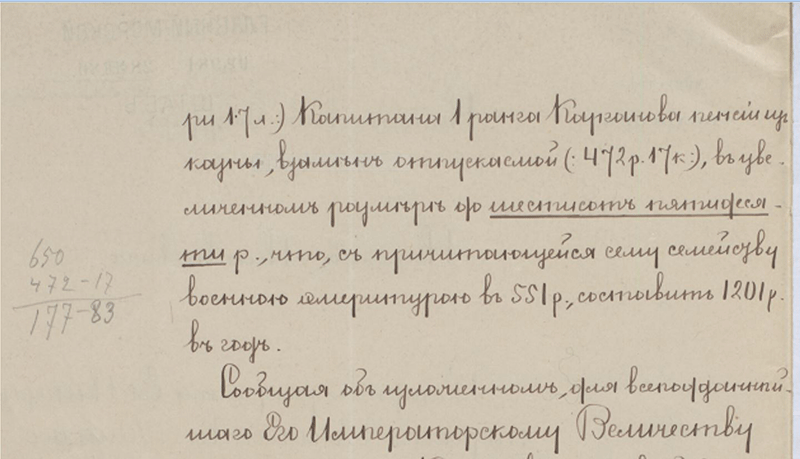 ри 17 л.:) Капитана 1 ранга Карганова пенсіи из
казны, взамѣнъ отпускаемой (: 472 р. 17 к:), въ уве-
личенномъ размѣрѣ до шестисотъ пятидеся-
ти р., что, съ причитающейся сему семейству
военною эмеритурою въ 551 р., составитъ 1201 р.
въ годъ.
Сообщая объ изложенномъ, для всеподданнѣй-
шаго Его Императорскому Величеству
650
472-17
177-83